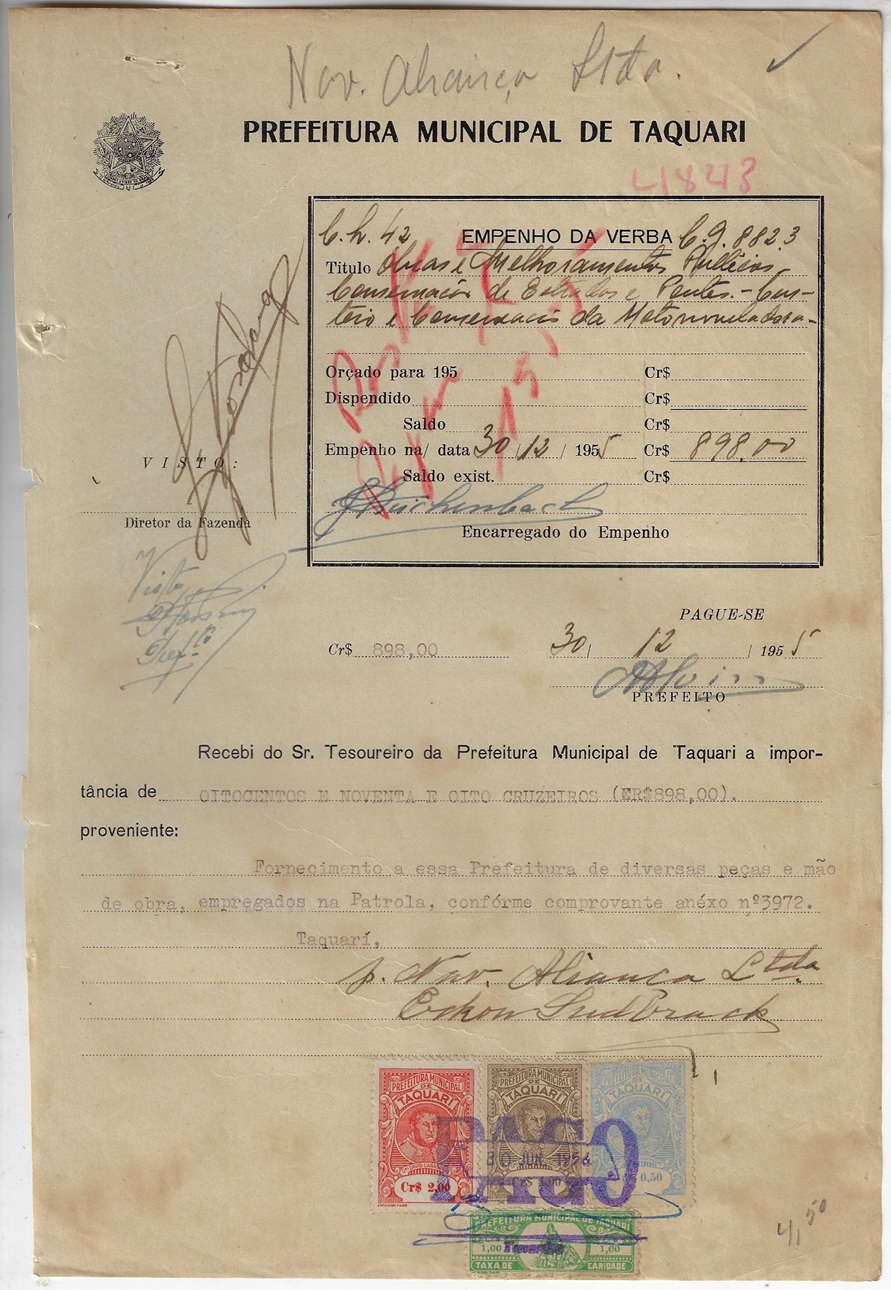 Nav. Aliança Ltda.
PREFEITURA MUNICIPAL DE TAQUARI
41843
C.h. 42 EMPENHO DA VERBA C.g. 8823
Titulo Obras e Melhoramentos Publicos
Conservação de Estradas e Pontes.- Cus-
teio e Conservacão da Motoniveladora-
Orçado para 195 Cr$
Dispendido Cr$
Saldo Cr$
Empenho na/ data 30/12/1955 Cr$ 898.00
Saldo exist. Cr$
Encarregado do Empenho
VISTO:
Diretor da Fazenda
Visto
Pref.to
PAGUE-SE
Cr$ 898,00 30/ 12 /1955
PREFEITO
Recebi do Sr. Tesoureiro da Prefeitura Municipal de Taquari a impor-
tância de OITOCENTOS E NOVENTA E OITO CRUZEIROS (ER$898,00).
proveniente:
Fornecimento a essa Prefeitura de diversas peças e mão
de obra, empregados na Patrola, confórme comprovante anéxo nº3972.
Taquarí,
p. Nav. Aliança Ltda
Eckon Sudbrack
PREFEITURA MUNICIPAL DE TAQUARI
Cr$ 2,00
PREFEITURA MUNICIPAL DE TAQUARI
Cr$ 1,00
PREFEITURA MUNICIPAL DE TAQUARI
0,50
PAGO
30 JUN. 1956
PREFEITURA MUNICIPAL DE TAQUARI
1,00 1,00
TAXA DE CARIDADE
4,50